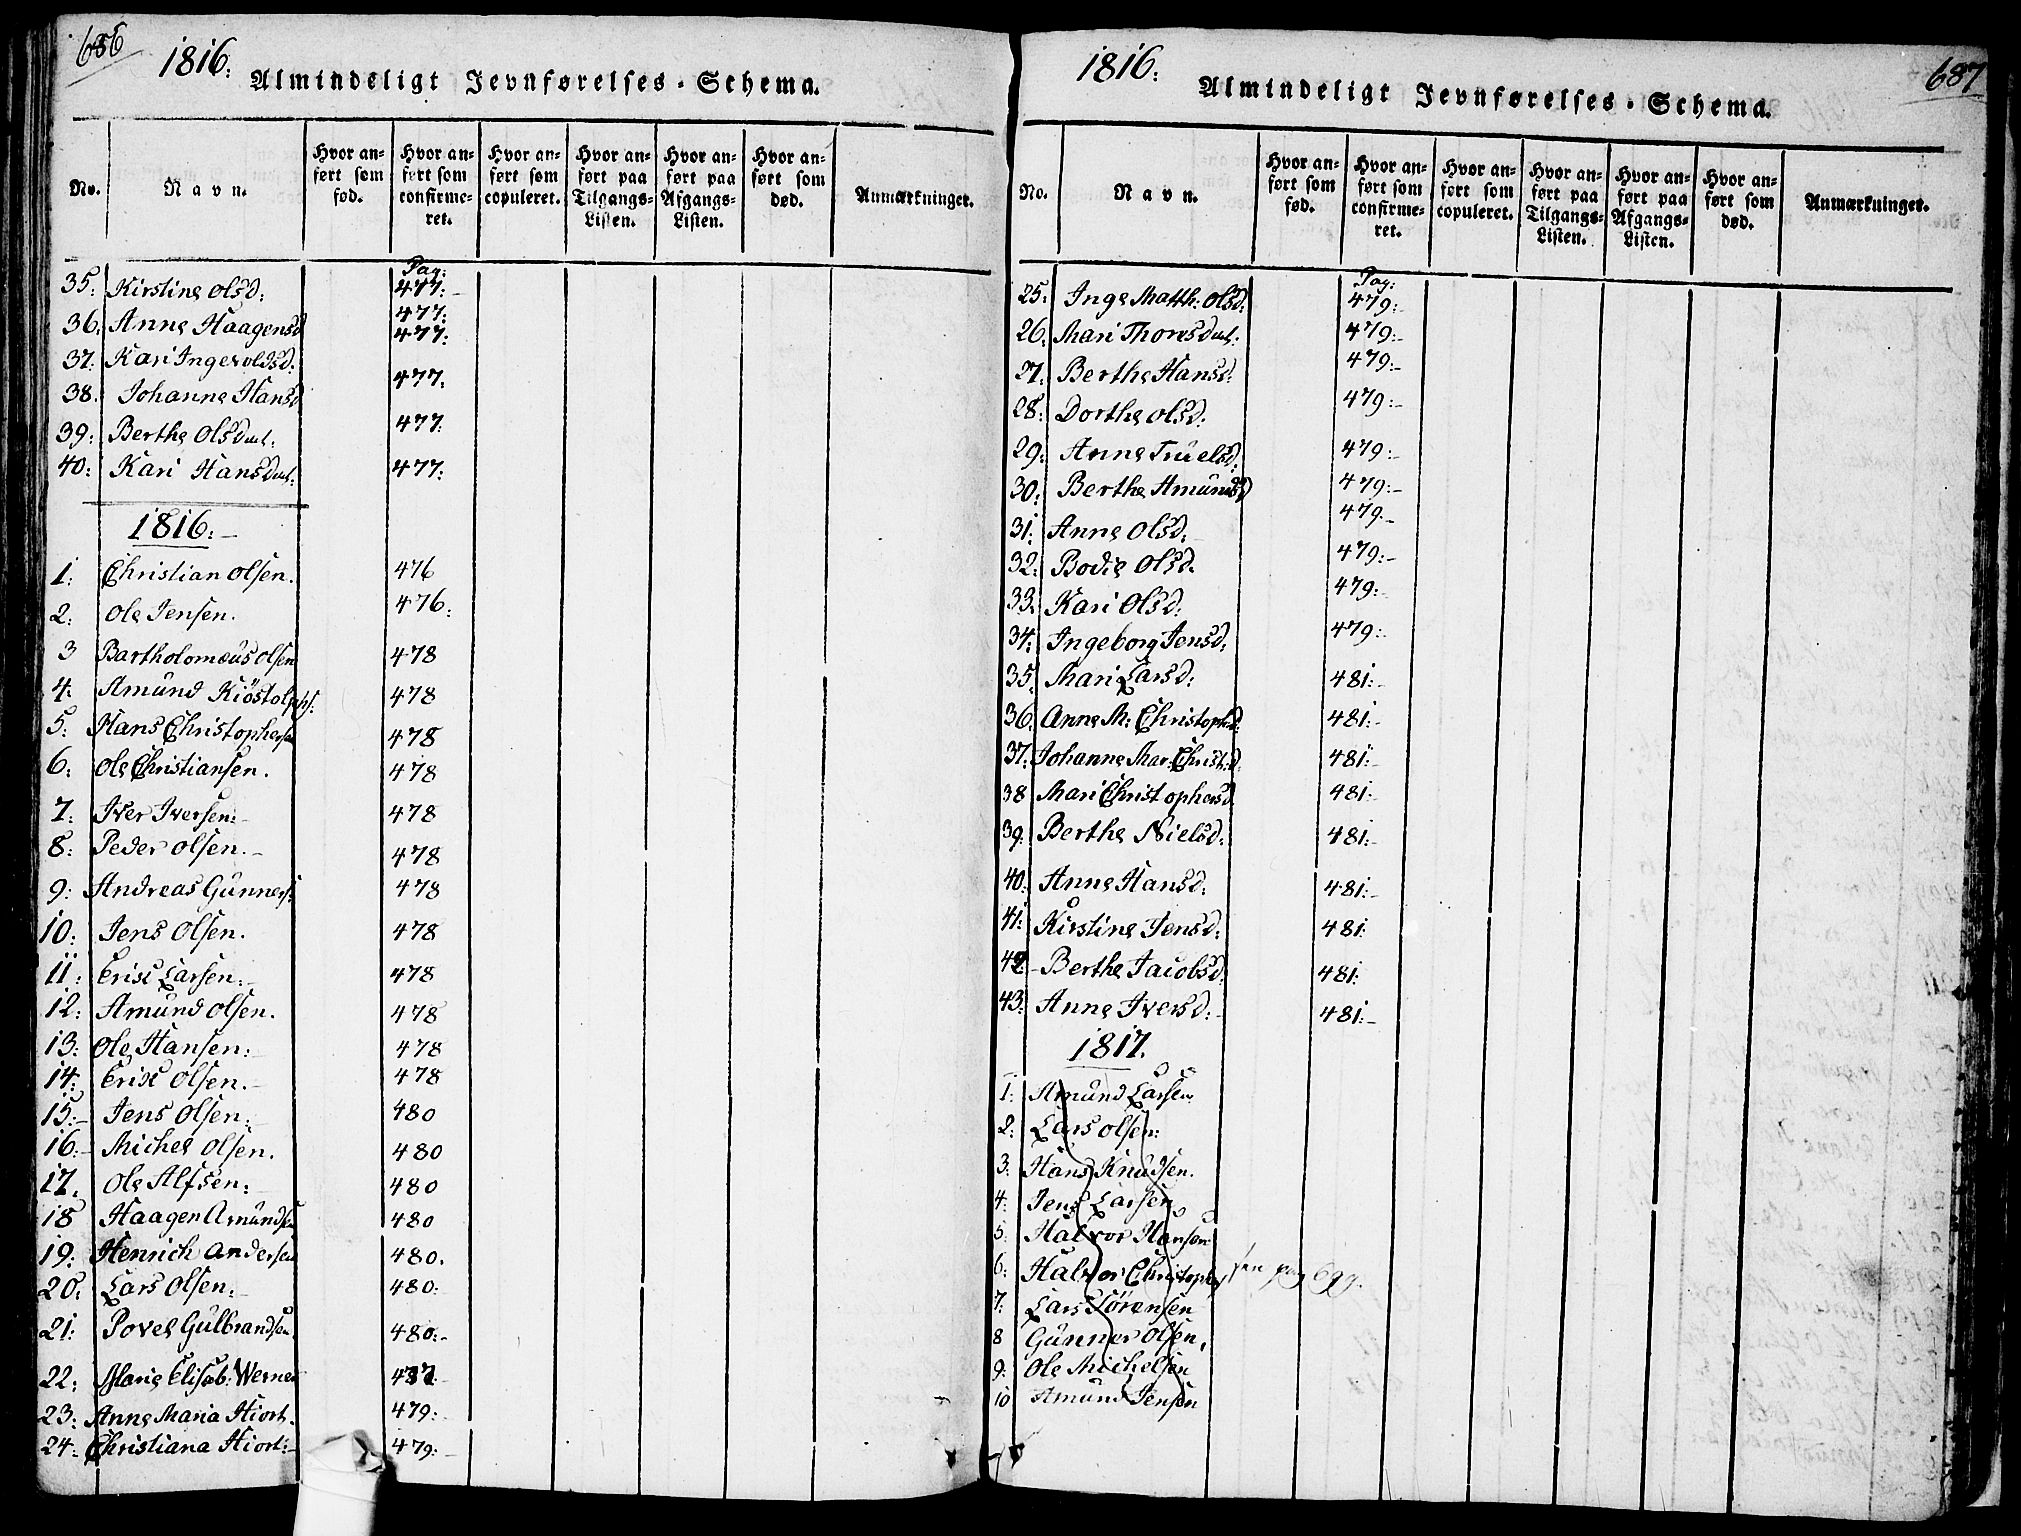 686
1816.
Almindeligt Jevnførelses-Schema.
No. Navn. Hvor anført som fød. Hvor anført som confirmeret. Hvor anført som copuleret. Hvor anført paa Tilgangs-Listen. Hvor anført paa Afgangs-Listen. Hvor anført som død. Anmærkninger.
Pag:
35: Kirstine Olsd: 477:-
36: Anne Haagensd 477:
37: Kari Ingevoldsd. 477:
38. Johanne Hansd 477:
39: Berthe Olsdat. 477:
40: Kari Hansdat. 477:
1816:-
1: Christian Olsen. 476
2: Ole Jensen. 476:
3 Bartholomæus Olsen 478
4: Amund Kiöstolphs: 478
5: Hans Christophersen 478
6: Ole Christiansen. 478
7: Iver Iversen:- 478
8: Peder Olsen.- 478
9: Andreas Gunners: 478
10: Jens Olsen. 478
11: Erik Larsen:- 478
12: Amund Olsen. 478
13: Ole Hansen:- 478
14: Erik Olsen.- 478
15:- Jens Olsen:- 480
16:- Michel Olsen. 480
17. Ole Alfsen:- 480
18 Haagen Amundsen 480
19: Henrich Andersen 480.
20: Lars Olsen:- 480:
21: Povel Gulbrandsen 480:-
22: Marie Elisab: Werner
23: Anne Maria Hiort. 479:-
24: Christiana Hiort:- 479:-
1816.
687
Almindeligt Jevnførelses-Schema.
No. Navn. Hvor anført som fød. Hvor anført som confirmeret. Hvor anført som copuleret. Hvor anført paa Tilgangs-Listen. Hvor anført paa Afgangs-Listen. Hvor anført som død. Anmærkninger.
Pag:
25: Inge Matth: Olsd: 479:-
26: Mari Thoresdat: 479:-
27: Berthe Hansd: 479:-
28: Dorthe Olsd: 479:-
29: Anne Truelsd: 479:-
30: Berthe Amundsd 479:-
31: Anne Olsd: 479.-
32: Bodil Olsd. 479:-
33: Kari Olsd: 479:-
34: Ingeborg Jensd: 479:-
35: Mari Larsd: 481:-
36: Anne M: Christophd: 481:-
37: Johanne Mar: Christ:d: 481:-
38 Mari Christophersd 481:-
39: Berthe Nielsd: 481:-
40: Anne Hansd: 481:-
41: Kirstine Jensd: 481:
42- Berthe Jacobsd: 481:
43: Anne Iversd:- 481:-
1817.
1: Amund Larsen
2: Lars Olsen:
3: Hans Knudsen.
4: Jens Larsen
5: Halvor Hansen
6: Halvor Christophs pag 699.
7: Lars Sörensen
8 Gunner Olsen,
9: Ole Michelsen
10 Amund Jensen